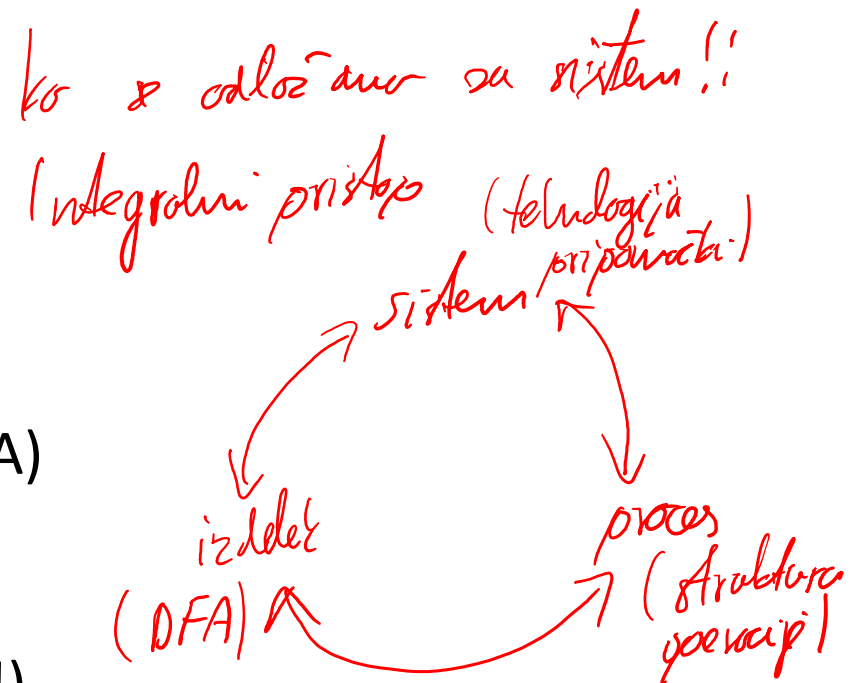 ko se odločamo za sistem!!
Integralni pristop
(tehnologija
priporočta.)
sistem
A)
izdelek
proces
(DFA)
(struktura
operacij)